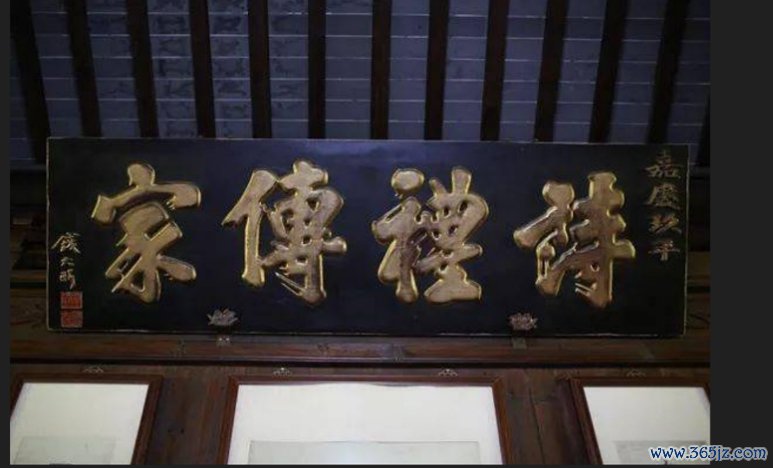 嘉慶玖年
詩禮傳家
錢大昕
www.365jz.com